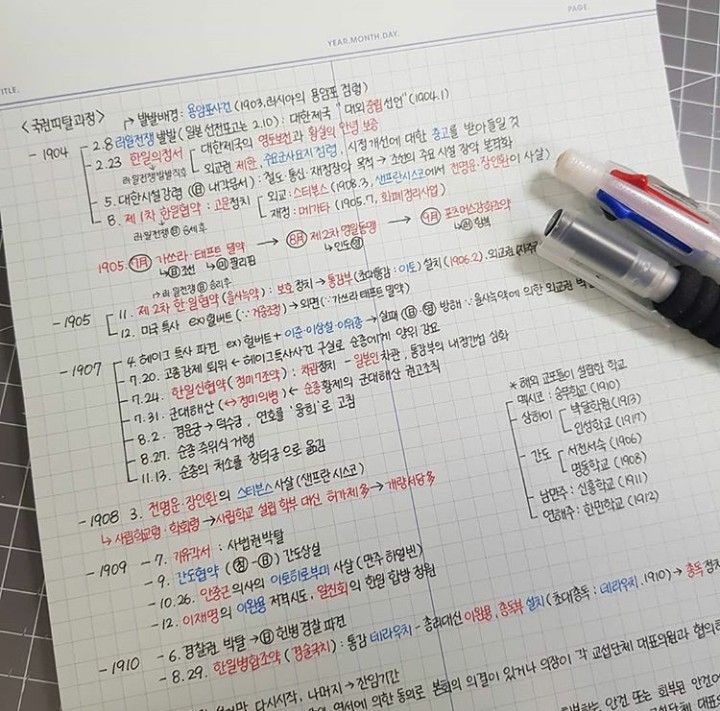 TITLE.
YEAR.MONTH.DAY.
PAGE.
<국권피탈과정> → 발발배경: 용암포사건 (1903.러시아의 용암포 점령)
- 1904 2.8 러일전쟁 발발 (일본 선전포고는 2.10) : 대한제국 "대외중립선언" (1904.1)
2.23 한일의정서 대한제국의 영토보전과 황실의 안녕 보증
러일전쟁발발직후 외교권 제한, 주요군사요지 점령, 시정개선에 대한 충고를 받아들일 것
5. 대한시설강령 (日 내각문서) : 철도 통신 재정장악 목적 → 조선의 주요 시설 장악 본격화
8. 제1차 한일협약 : 고문정치 외교 : 스티븐스 (1908.3, 샌프란시스코에서 전명운, 장인환이 사살)
러일전쟁 日 승세후 재정 : 메가타 (1905.7, 화폐정리사업)
1905. 7月 가쓰라·태프트 밀약 → 8月 제2차 영일동맹 → 9月 포츠머스강화조약
↳日 조선 ↳美 필리핀 ↳인도
→ 러일전쟁 日 승리후
- 1905 11. 제2차 한일협약 (을사늑약) : 보호정치 → 통감부 (초대통감 : 이토) 설치 (1906.2). 외교권
12. 미국 특사 ex) 헐버트 (∵ 거중조정) → 외면 (∵ 가쓰라 태프트 밀약)
- 1907 4. 헤이그 특사 파견 ex) 헐버트 + 이준·이상설·이위종 → 실패 (日 英 방해 ∵ 을사늑약에 의한 외교권 박
7.20. 고종강제 퇴위 ← 헤이그특사사건 구실로 순종에게 양위 강요
7.24. 한일신협약 (정미7조약) : 차관정치 - 일본인 차관, 통감부의 내정간섭 심화
7.31. 군대해산 (↔ 정미의병) ← 순종황제의 군대해산 권고조칙
8.2. 경운궁 → 덕수궁, 연호를 '융희'로 고침
8.27. 순종 즉위식 거행
11.13. 순종의 처소를 창덕궁으로 옮김
* 해외 교포들이 설립한 학교
멕시코 : 숭무학교 (1910)
상하이 박달학원 (1913)
인성학교 (1917)
간도 서전서숙 (1906)
명동학교 (1908)
남만주 : 신흥학교 (1911)
연해주 : 한민학교 (1912)
- 1908 3. 전명운 장인환의 스티븐스 사살 (샌프란시스코)
↳ 사립학교령·학회령 → 사립학교 설립 학부 대신 허가제 多 → 개량서당 多
- 1909 - 7. 기유각서 : 사법권박탈
- 9. 간도협약 (청-日) 간도상실
- 10.26. 안중근 의사의 이토히로부미 사살 (만주 하얼빈)
- 12. 이재명의 이완용 저격시도, 일진회의 한일 합방 청원
- 1910 - 6. 경찰권 박탈 → 日 헌병 경찰 파견
- 8.29. 한일병합조약 (경술국치) : 통감 데라우치 - 총리대신 이완용, 총독부 설치 (초대총독 : 데라우치. 1910) → 총독정치
다시시작, 나머지 → 잔암기간
의한 동의로 본회의 의결이 있거나 의장이 각 교섭단체 대표의원과 협의
안건 또는 회부된 안건